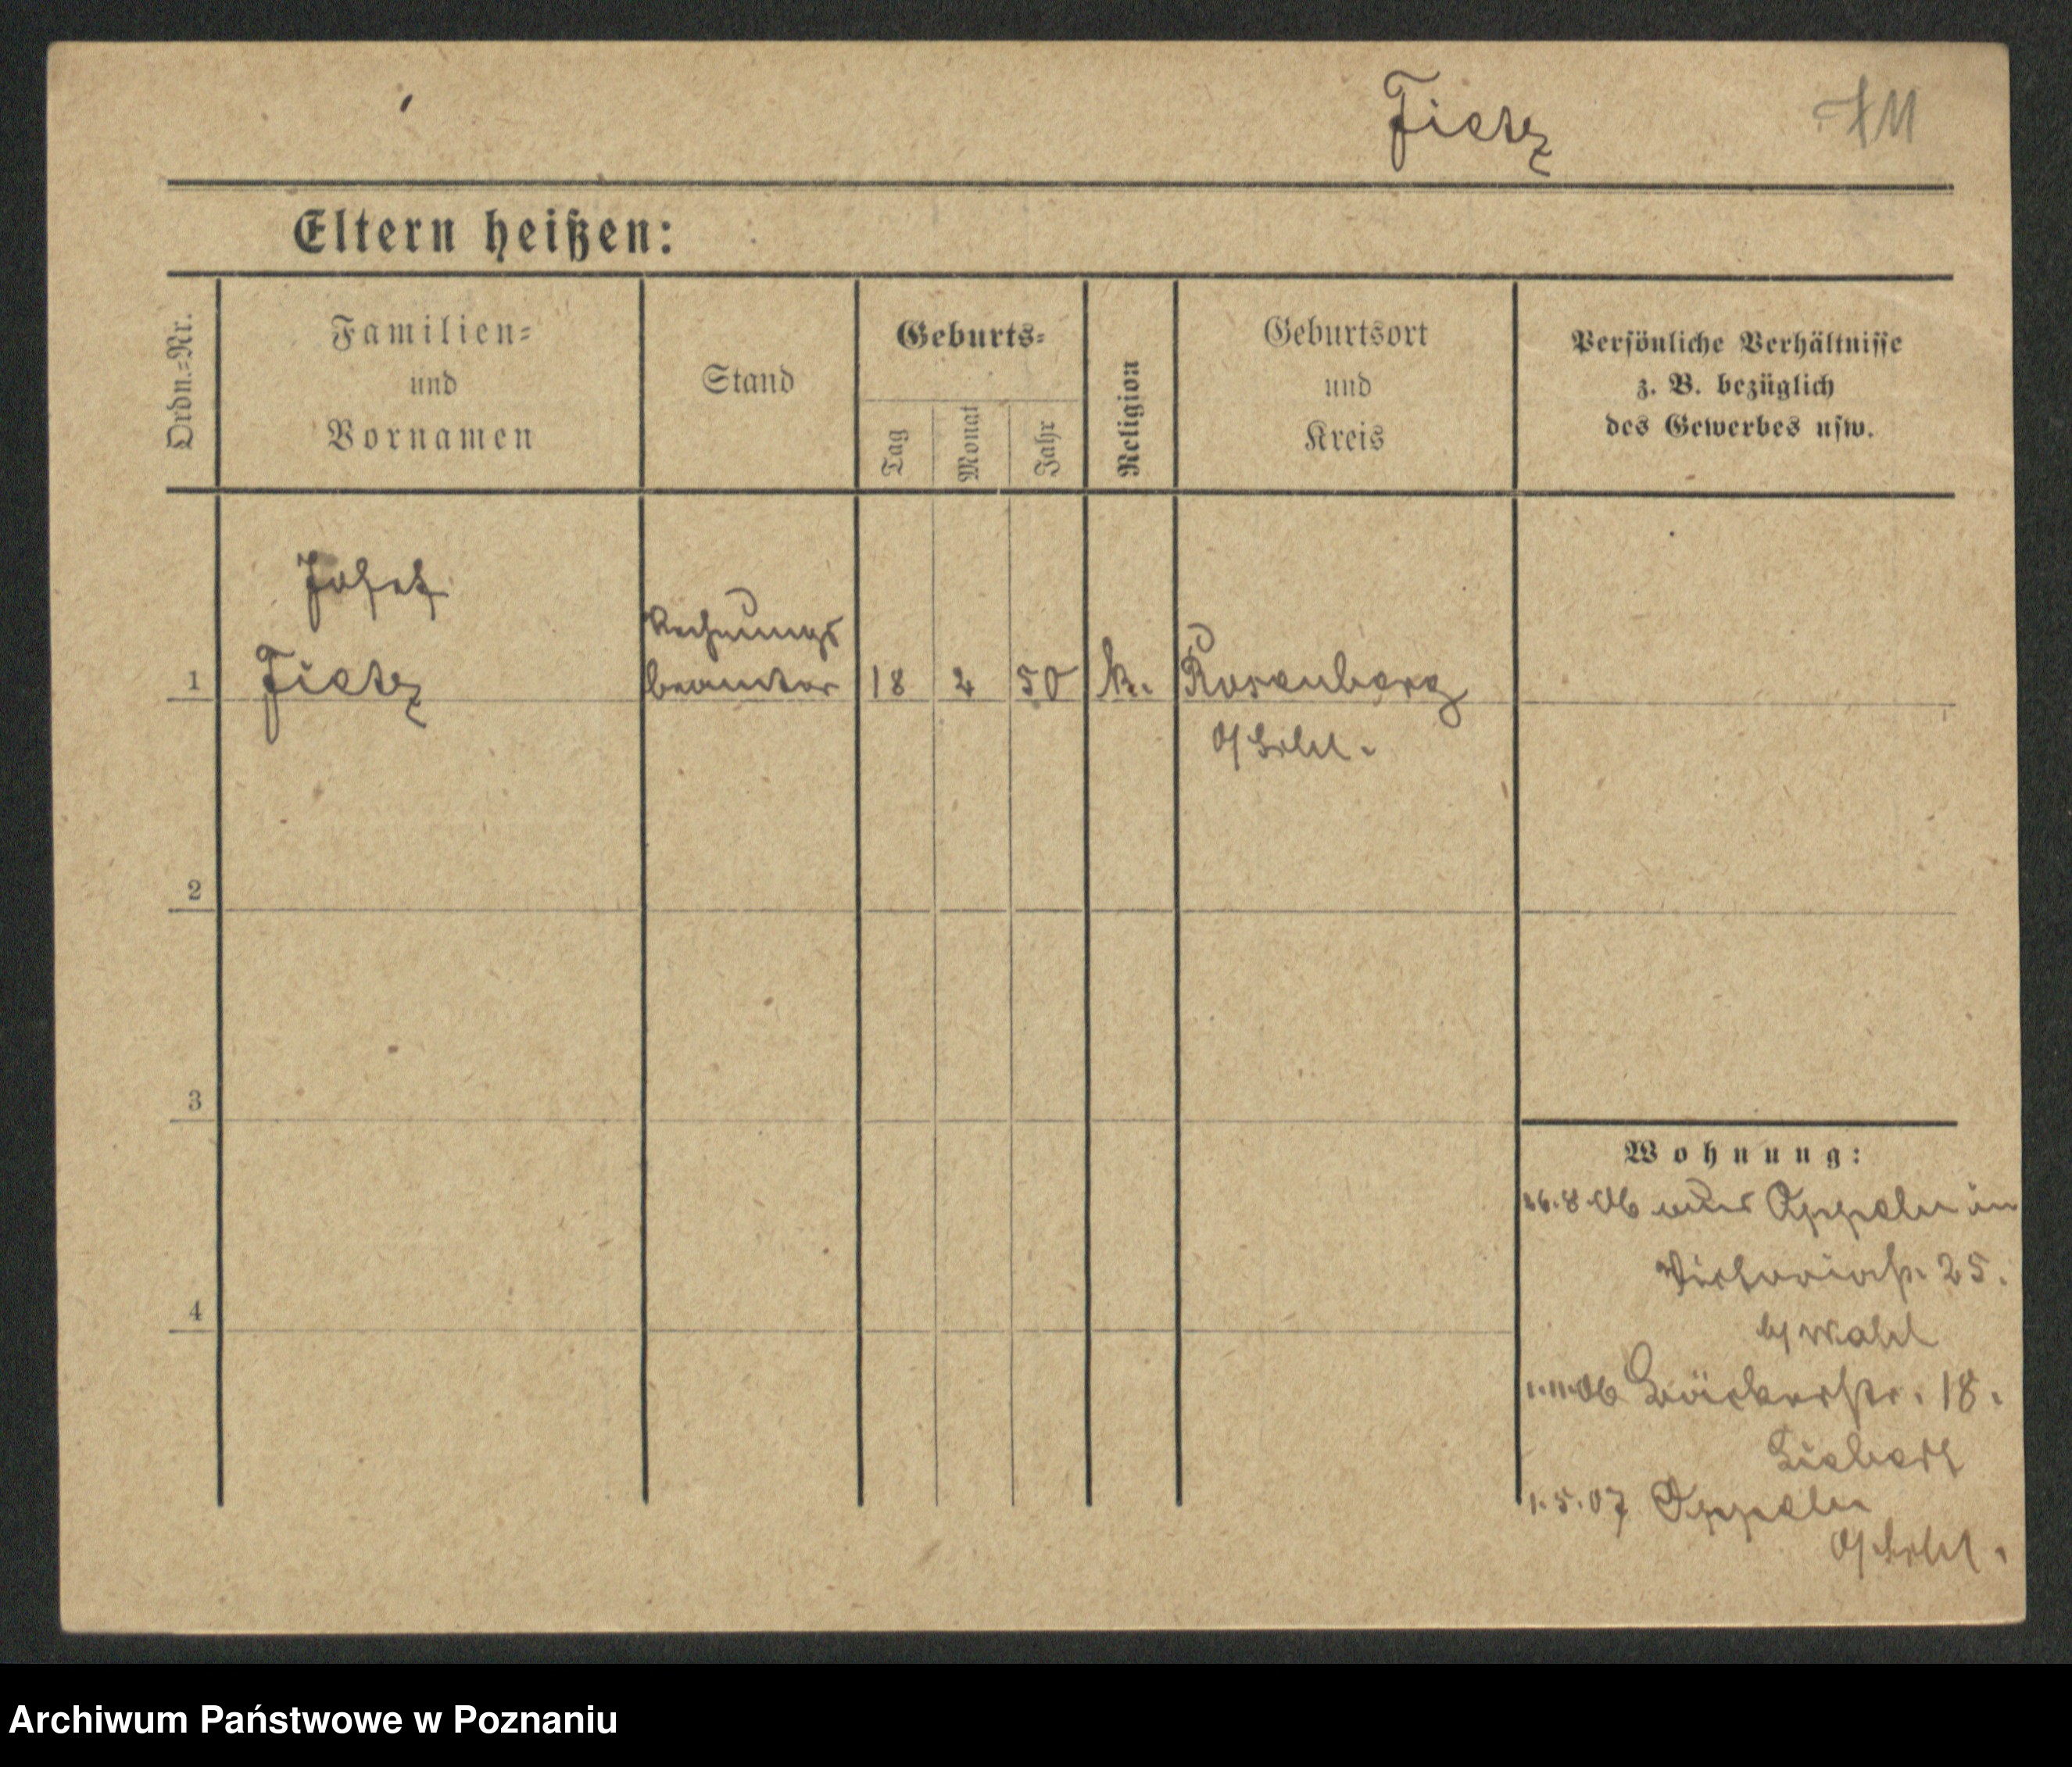 Fietz
Eltern heißen:
Ordn.=Nr.
Familien=
und
Vornamen
Stand
Geburts=
Tag
Monat
Jahr
Religion
Geburtsort
und
Kreis
Persönliche Verhältnisse
z. B. bezüglich
des Gewerbes usw.
Josef
Fietz
1
Rechnungs
beamter
18
2
50
k.
Rosenberg
O/Schl.
2
3
4
Wohnung:
26.8.06 aus Oppeln in
Victoriastr. 25.
b/ Wahl
1.11.06 Bäckerstr. 18.
Liebert
1.5.07 Oppeln
O/Schl.
Archiwum Państwowe w Poznaniu